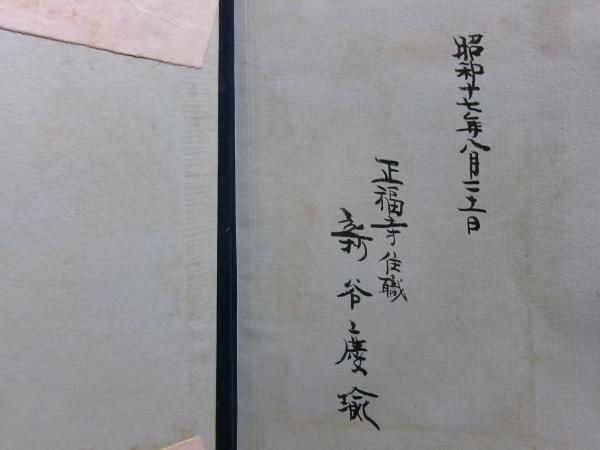 昭和十七年八月二十一日
正福寺住職
新谷慶瑜